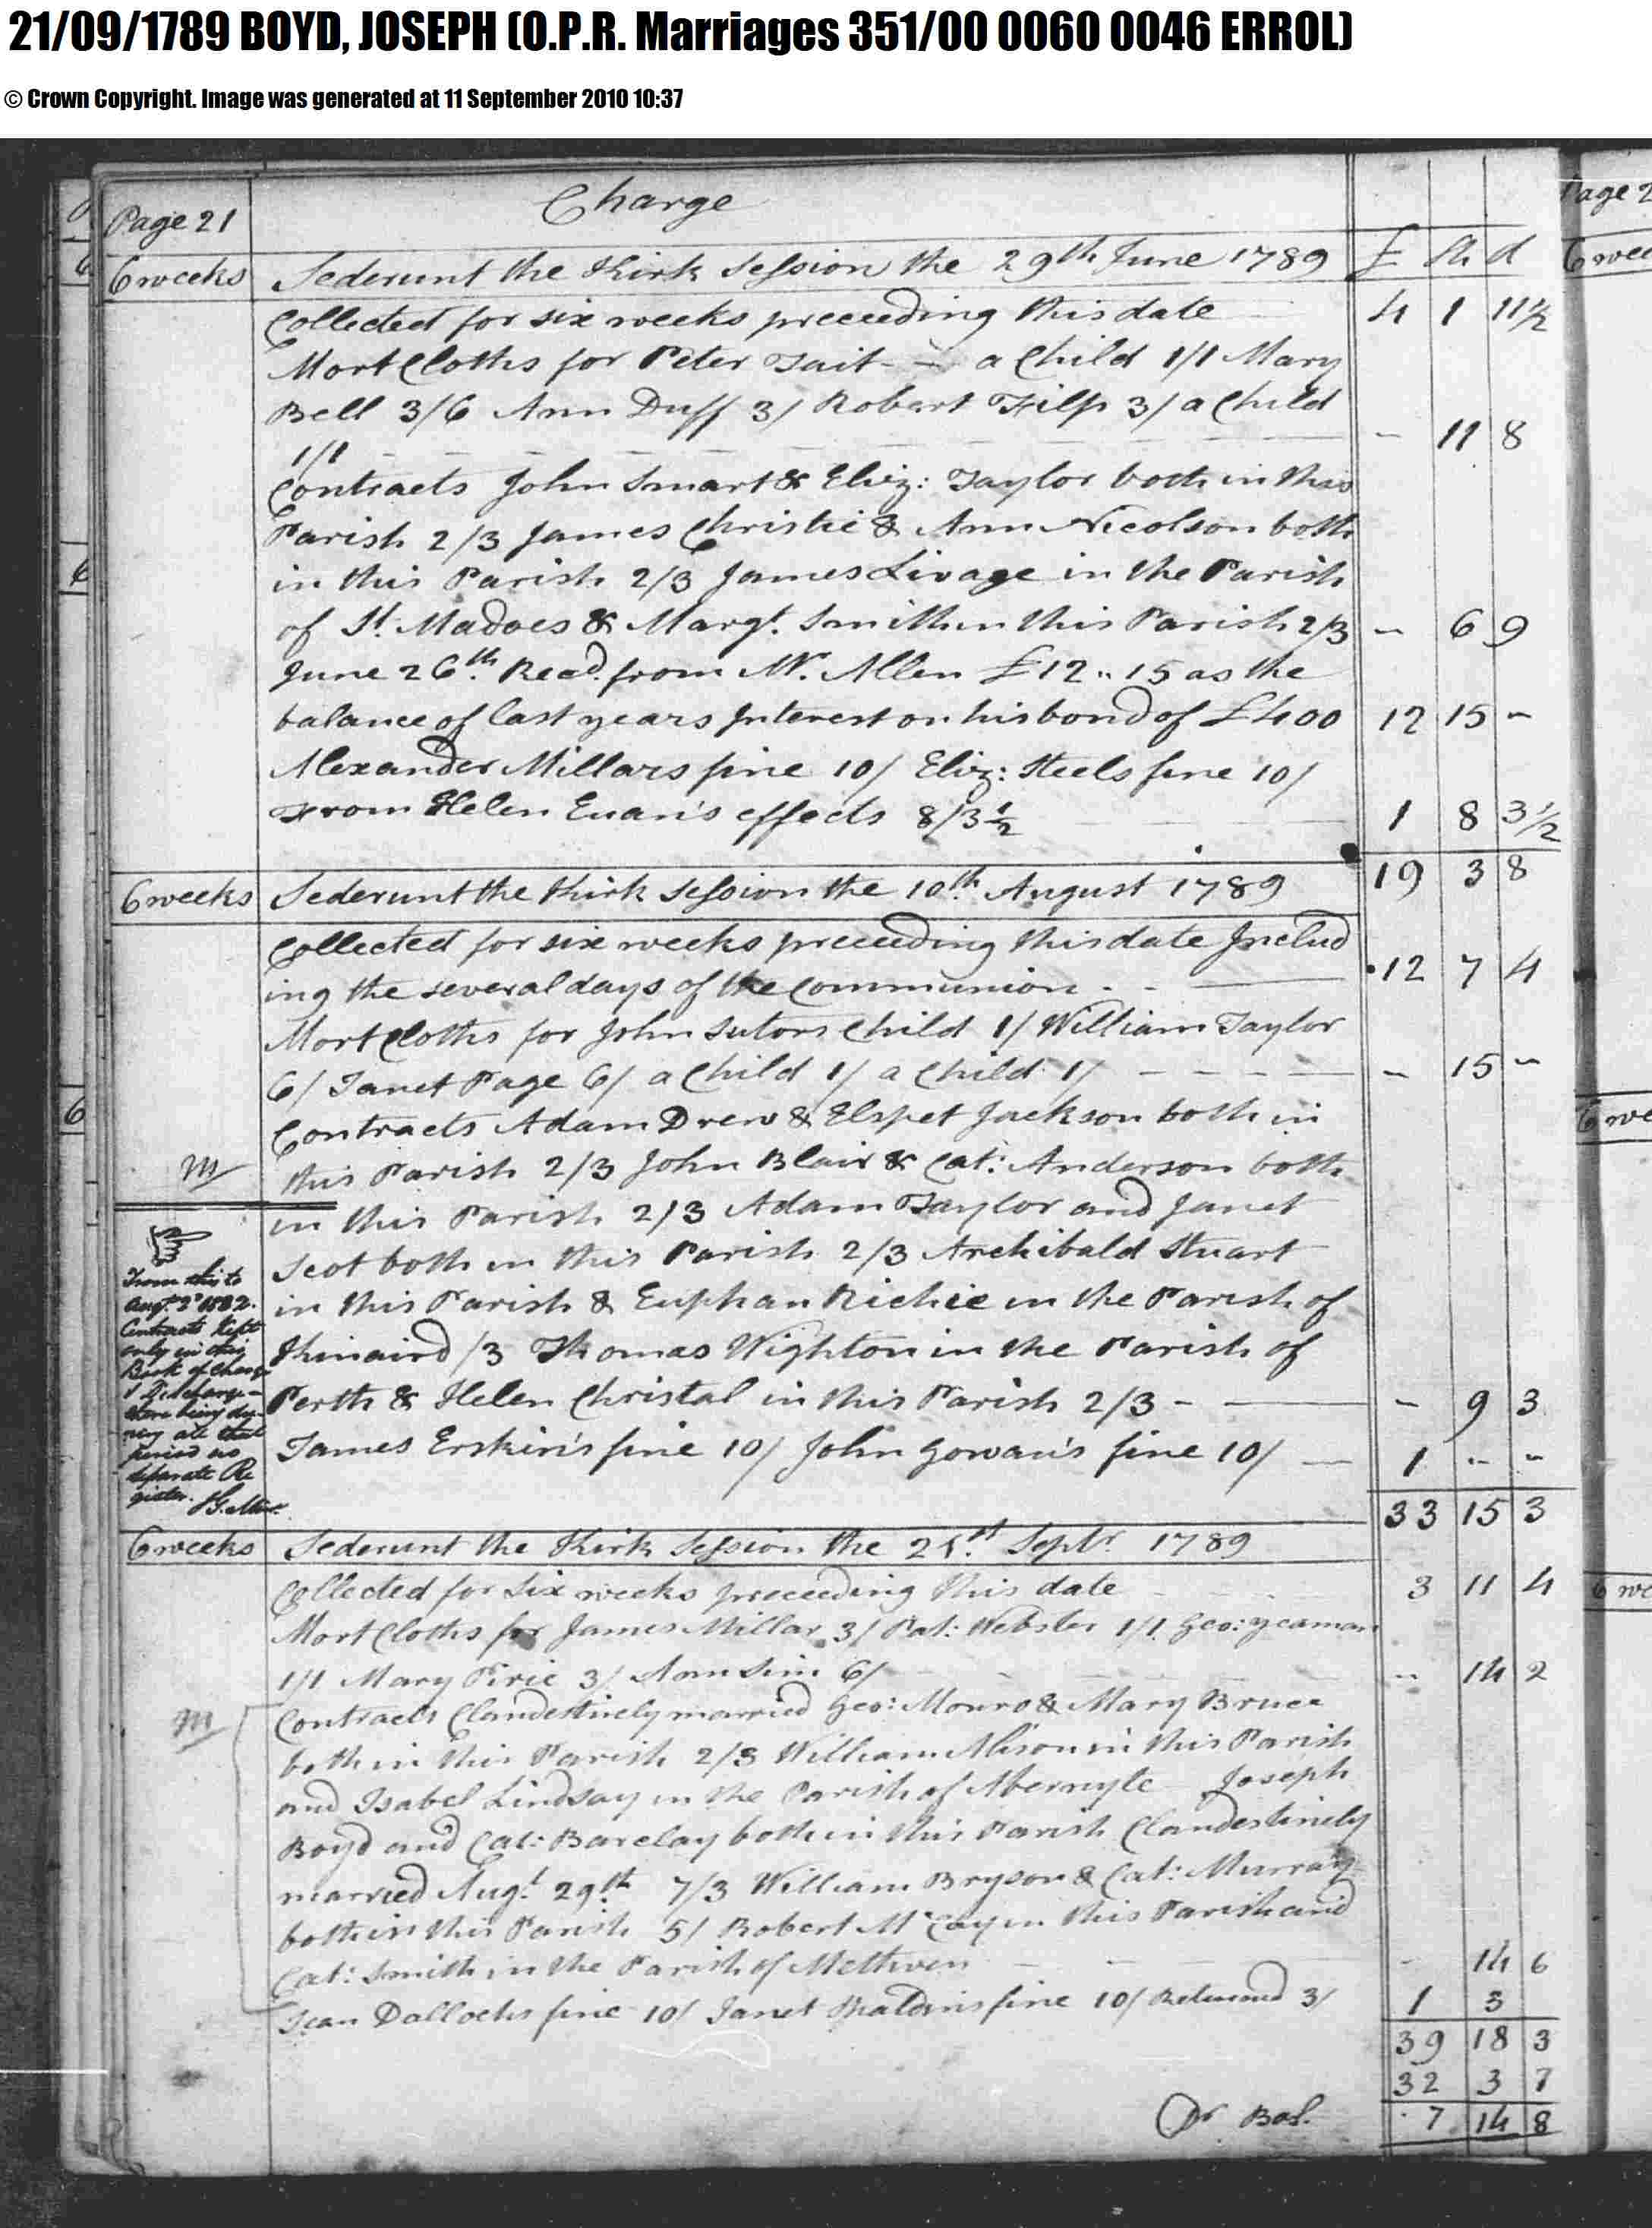 21/09/1789 BOYD, JOSEPH (O.P.R. Marriages 351/00 0060 0046 ERROL)
© Crown Copyright. Image was generated at 11 September 2010 10:37
Page 21 Charge
£ Sh d
6 weeks Sederunt the Kirk Session the 29th June 1789
Collected for six weeks preceeding this date 4 1 11½
Mort Cloths for Peter Tait - - a Child 1/1 Mary
Bell 3/6 Ann Duff 3/ Robert Kilp 3/ a Child
1/1 - 11 8
Contracts John Smart & Eliz: Taylor both in this
Parish 2/3 James Christie & Ann Nicolson both
in this Parish 2/3 James Livage in the Parish
of St. Madoes & Margt. Smith in this Parish 2/3 - 6 9
June 26th. Recd. from Mr. Allen £12 .. 15 as the
balance of last years Interest on his bond of £400 12 15 -
Alexander Millars fine 10/ Eliz: Steels fine 10/
From Helen Euan's effects 8/3½ 1 8 3½
19 3 8
6 weeks Sederunt the Kirk Session the 10th. August 1789
Collected for six weeks preceeding this date Includ
ing the several days of the Communion - - 12 7 4
Mort Cloths for John Sutors Child 1/ William Taylor
6/ Janet Page 6/ a Child 1/ a Child 1/ - 15 -
Contracts Adam Drew & Elspet Jackson both in
M this Parish 2/3 John Blair & Cat: Anderson both
in this Parish 2/3 Adam Taylor and Janet
Scot both in this Parish 2/3 Archibald Stuart
in this Parish & Euphan Richie in the Parish of
Kinaird /3 Thomas Wighton in the Parish of
Perth & Helen Christal in this Parish 2/3 - - 9 3
James Erskin's fine 10/ John Gowan's fine 10/ 1 - -
33 15 3
From this to
Augt. 2d
Contracts kept
only in this
Book of Charge
& Discharge -
there being du-
ring all that
period no
separate Re
gister.
6 weeks Sederunt the Kirk Session the 21st. Septr. 1789
Collected for Six weeks preceeding this date 3 11 4
Mort Cloths for James Millar 3/ Pat: Webster 1/1 Geo: yeaman
1/1 Mary Pirie 3/ Ann Sim 6/ - 14 2
M Contracts Clandestinely married Geo: Monro & Mary Bruce
both in this Parish 2/3 William Alison in this Parish
and Isabel Lindsay in the Parish of Abernyte Joseph
Boyd and Cat: Barclay both in this Parish Clandestinely
married Augt. 29th. 7/3 William Bryson & Cat: Murray
both in this Parish 5/ Robert McCay in this Parish and
Cat: Smith in the Parish of Methven - 14 6
Jean Dallochs fine 10/ Janet fine 10/ 3/ 1 3
39 18 3
32 3 7
Dr Bal. 7 14 8
Page 2
6 wee